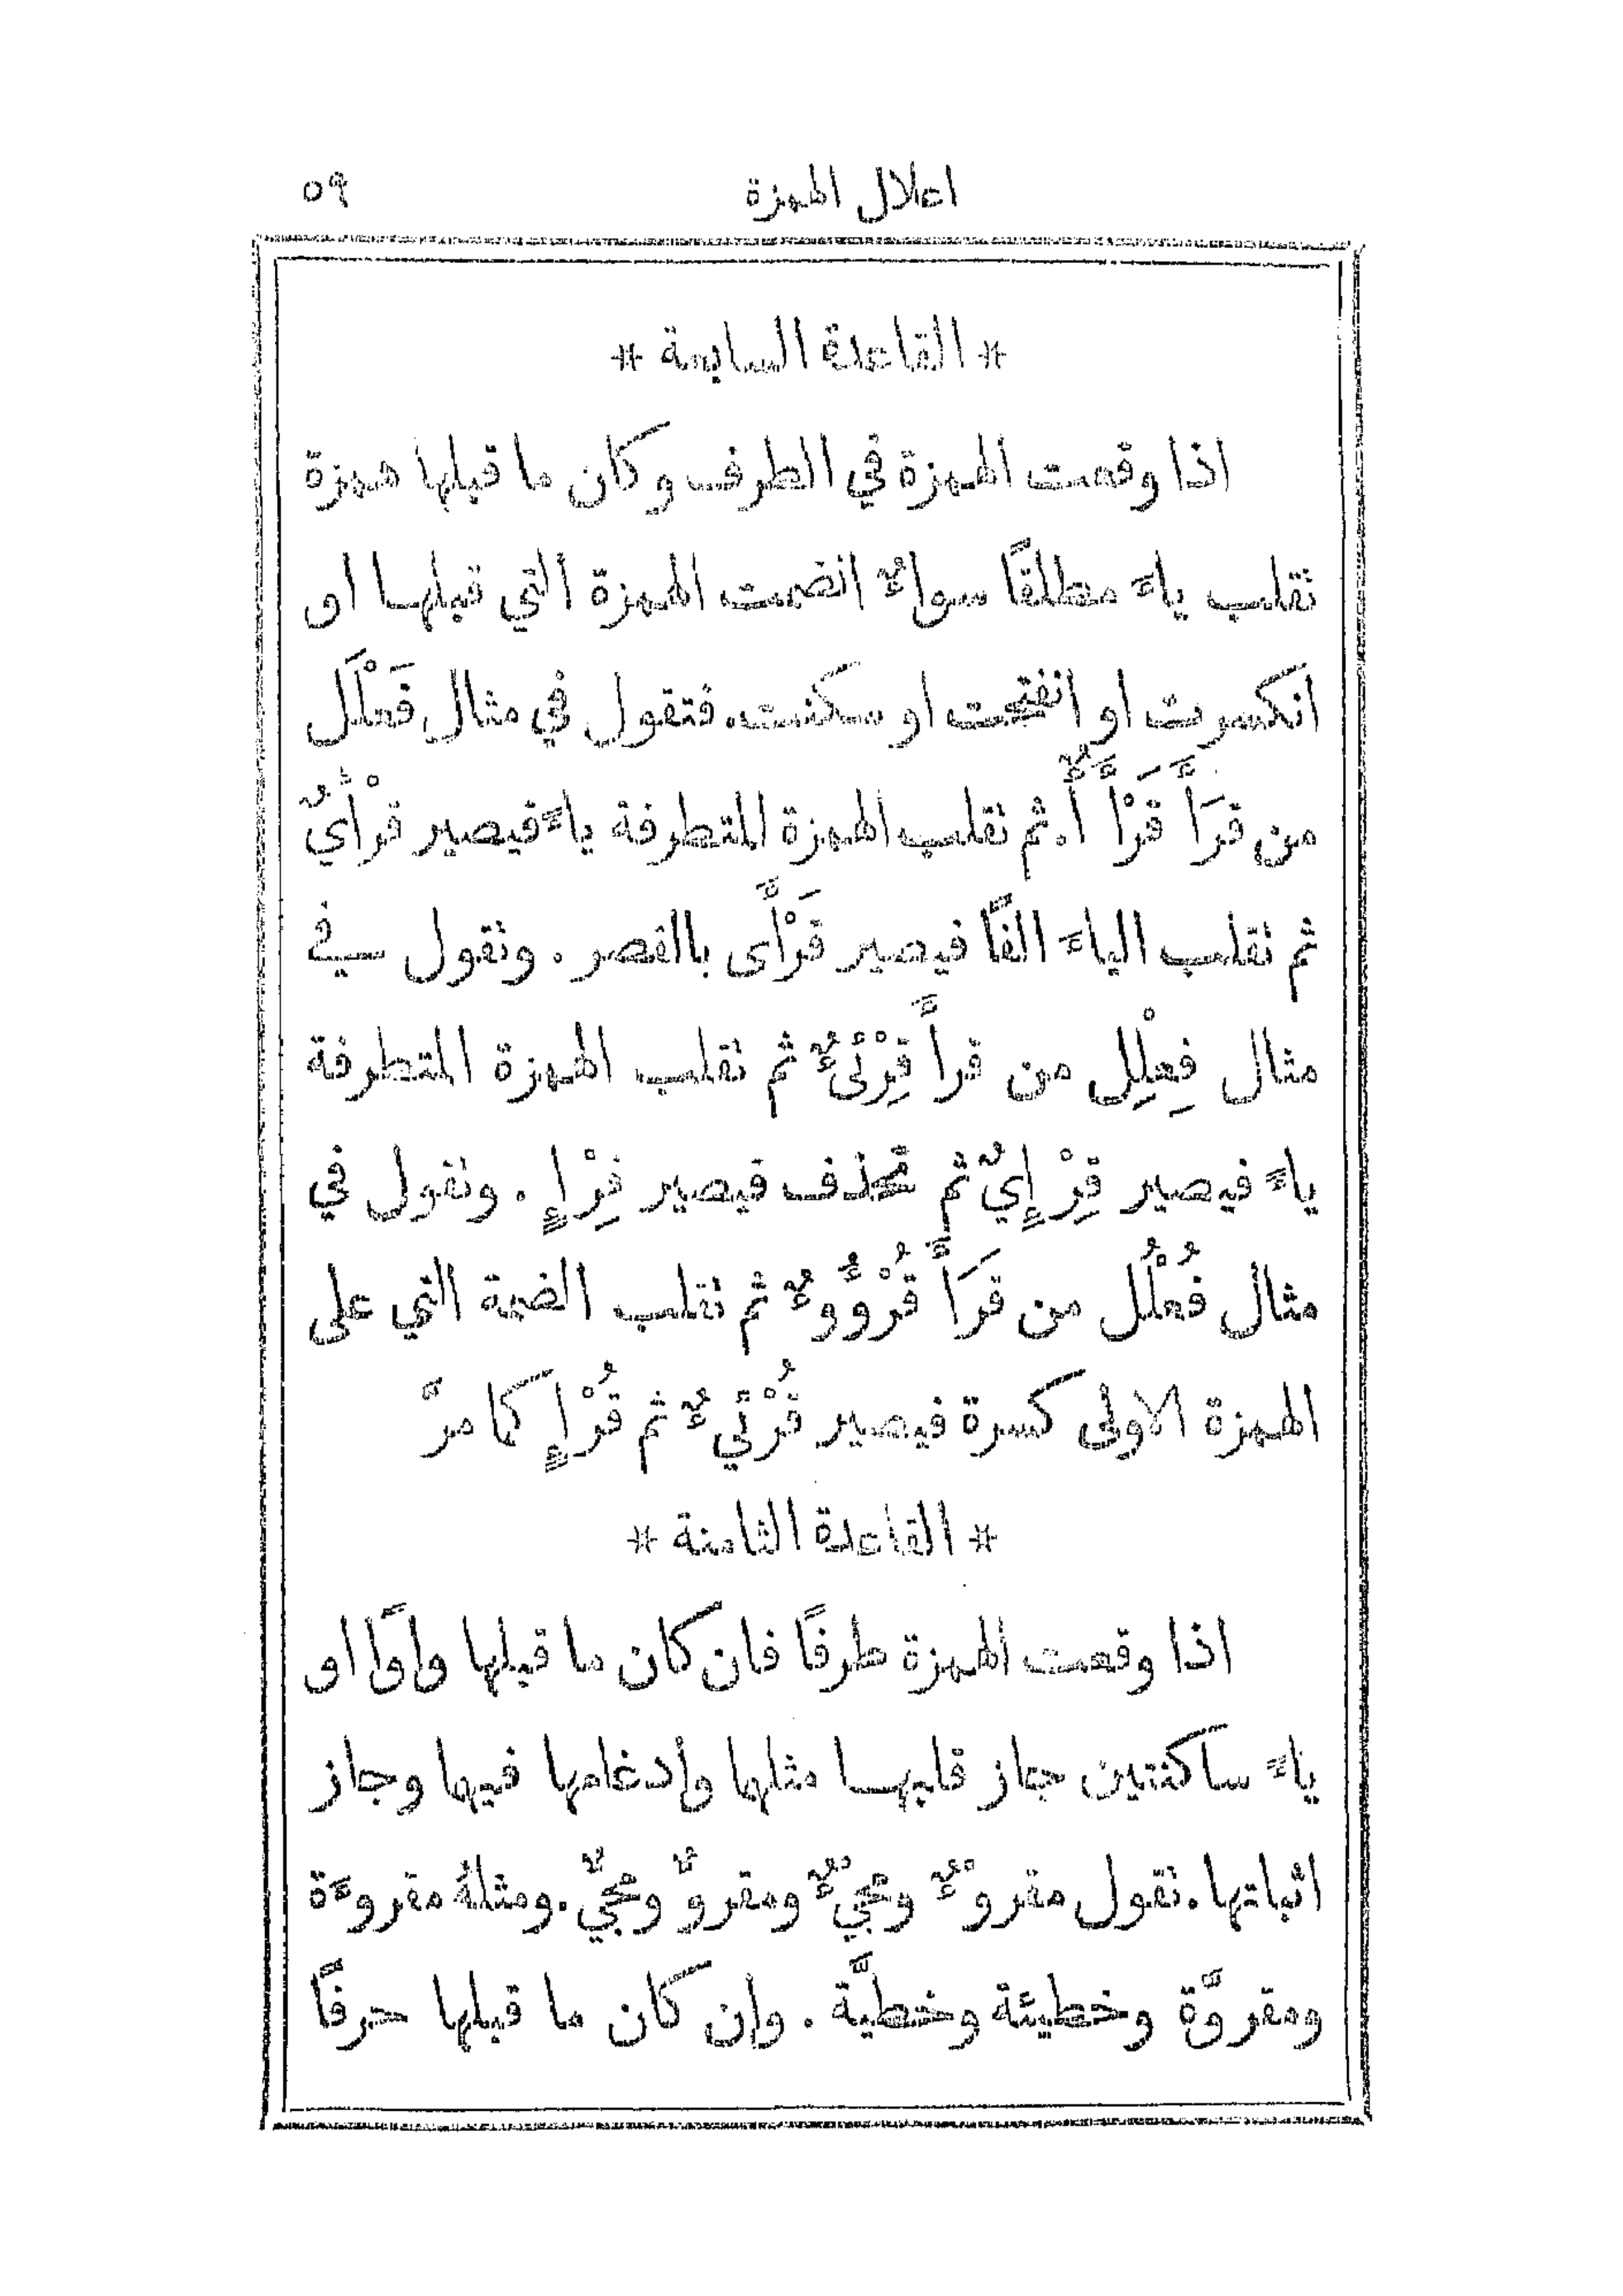 اعلال الهمزة ٥٩
* القاعدة السابعة *
اذا وقعت الهمزة في الطرف وكان ما قبلها همزة
تقلب ياءً مطلقًا سواءٌ انضمت الهمزة التي قبلها او
انكسرت او انفتحت او سكنت. فتقول في مثال فَعْلَل
من قَرَأَ قَرْأَأٌ. ثم تقلب الهمزة المتطرفة ياءً فيصير قَرْأَيٌ
ثم تقلب الياءَ الفًا فيصير قَرْأَى بالقصر . وتقول في
مثال فِعْلِل من قرأَ قِرْئِئٌ ثم تقلب الهمزة المتطرفة
ياءً فيصير قِرْإِيٌ ثم تحذف فيصير قِرْإٍ . وتقول في
مثال فُعْلُل من قَرَأَ قُرْؤُوءٌ ثم تقلب الضمة التي على
الهمزة الاولى كسرة فيصير قُرْئيءٌ ثم قُرْإٍ كما مرَّ
* القاعدة الثامنة *
اذا وقعت الهمزة طرفًا فان كان ما قبلها واوًا او
ياءً ساكنتين جاز قلبها مثلها وإدغامها فيها وجاز
اثباتها. تقول مقروْءٌ ومجيْءٌ ومقروٌّ ومجيٌّ. ومثلهُ مقروءَة
ومقروَّة وخطيئة وخطيَّة . وإن كان ما قبلها حرفًا